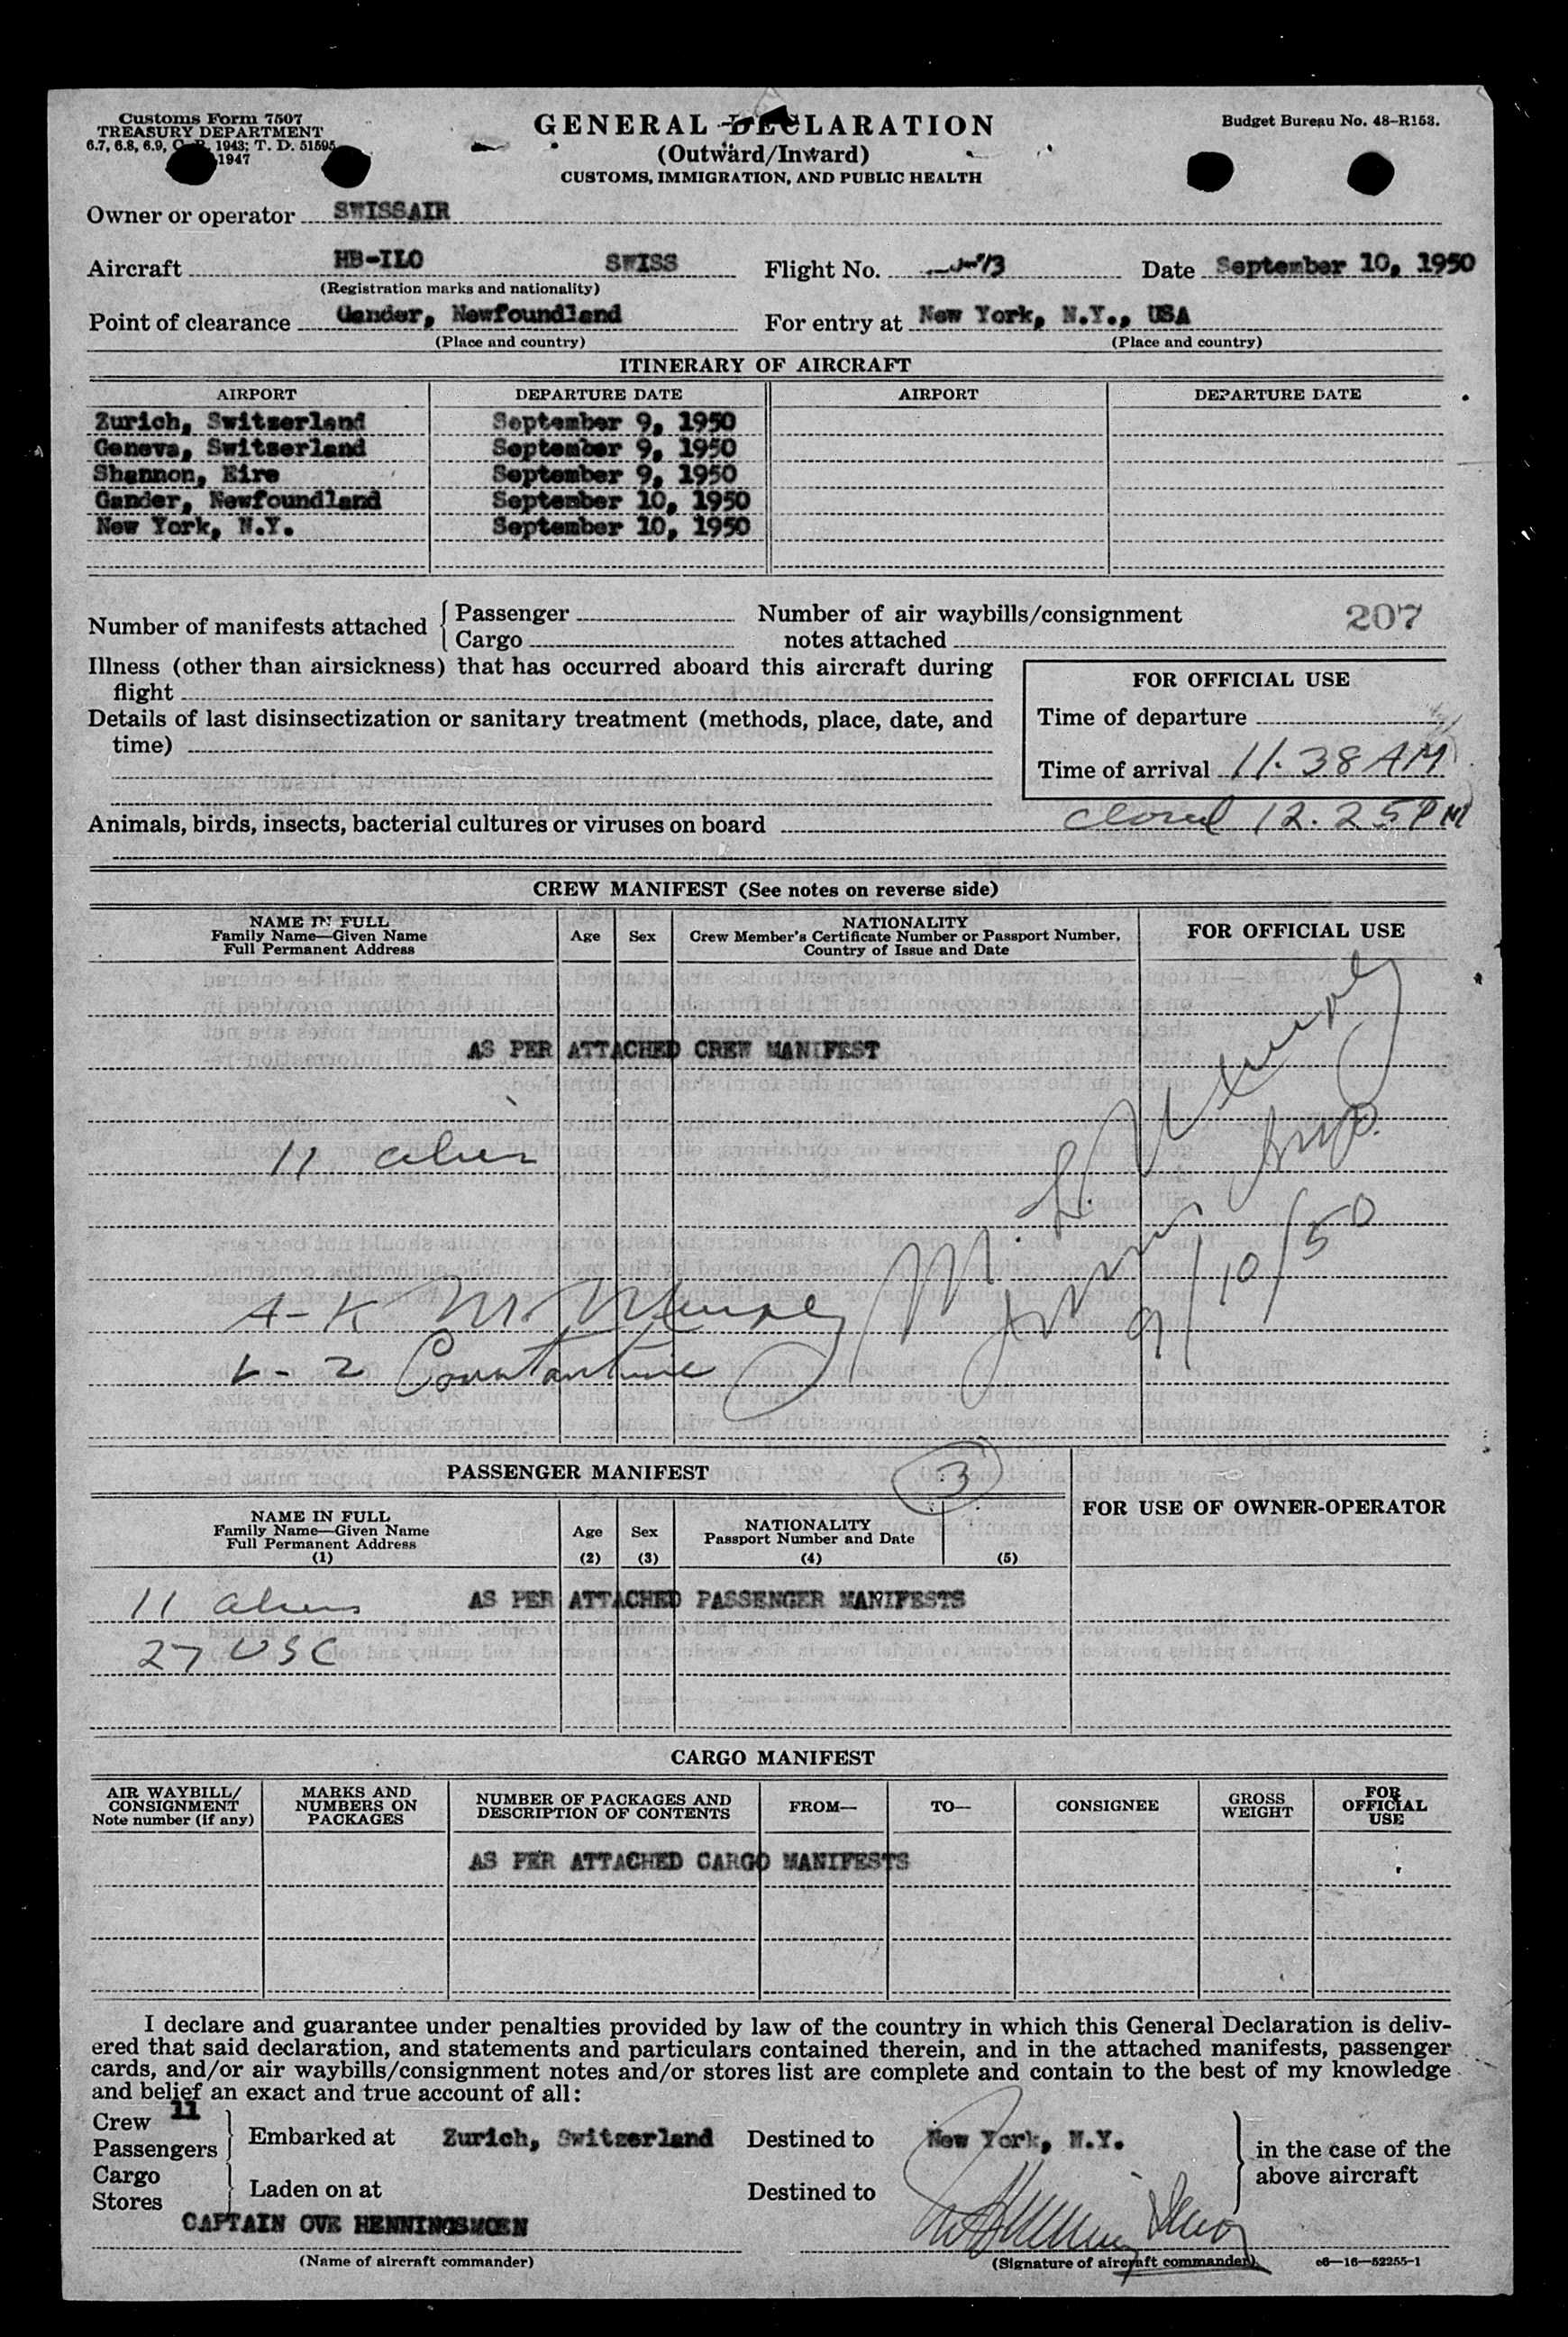 Customs Form 7507
TREASURY DEPARTMENT
6.7, 6.8, 6.9, 1943; T. D. 51595
1947
GENERAL DECLARATION
(Outward/Inward)
CUSTOMS, IMMIGRATION, AND PUBLIC HEALTH
Budget Bureau No. 48–R153.
Owner or operator SWISSAIR
Aircraft HB-ILO SWISS Flight No. Date September 10, 1950
(Registration marks and nationality)
Point of clearance Gander, Newfoundland For entry at New York, N.Y., USA
(Place and country) (Place and country)
ITINERARY OF AIRCRAFT
AIRPORT DEPARTURE DATE AIRPORT DEPARTURE DATE
Zurich, Switzerland September 9, 1950
Geneva, Switzerland September 9, 1950
Shannon, Eire September 9, 1950
Gander, Newfoundland September 10, 1950
New York, N.Y. September 10, 1950
Number of manifests attached { Passenger
Cargo
Number of air waybills/consignment
notes attached
207
Illness (other than airsickness) that has occurred aboard this aircraft during
flight
Details of last disinsectization or sanitary treatment (methods, place, date, and
time)
FOR OFFICIAL USE
Time of departure
Time of arrival 11.38 AM
closed 12.25 PM
Animals, birds, insects, bacterial cultures or viruses on board
CREW MANIFEST (See notes on reverse side)
NAME IN FULL
Family Name—Given Name
Full Permanent Address
Age
Sex
NATIONALITY
Crew Member's Certificate Number or Passport Number,
Country of Issue and Date
FOR OFFICIAL USE
AS PER ATTACHED CREW MANIFEST
11 alien
9/10/50
A-K
L-Z Constantine
PASSENGER MANIFEST
3
FOR USE OF OWNER-OPERATOR
NAME IN FULL
Family Name—Given Name
Full Permanent Address
(1)
Age
(2)
Sex
(3)
NATIONALITY
Passport Number and Date
(4)
(5)
11 aliens AS PER ATTACHED PASSENGER MANIFESTS
27 USC
CARGO MANIFEST
AIR WAYBILL/
CONSIGNMENT
Note number (if any)
MARKS AND
NUMBERS ON
PACKAGES
NUMBER OF PACKAGES AND
DESCRIPTION OF CONTENTS
FROM—
TO—
CONSIGNEE
GROSS
WEIGHT
FOR
OFFICIAL
USE
AS PER ATTACHED CARGO MANIFESTS
I declare and guarantee under penalties provided by law of the country in which this General Declaration is deliv-
ered that said declaration, and statements and particulars contained therein, and in the attached manifests, passenger
cards, and/or air waybills/consignment notes and/or stores list are complete and contain to the best of my knowledge
and belief an exact and true account of all:
Crew 11
Passengers } Embarked at Zurich, Switzerland Destined to New York, N.Y.
Cargo
Stores } Laden on at Destined to
} in the case of the
above aircraft
CAPTAIN OVE HENNINGSMOEN
(Name of aircraft commander) (Signature of aircraft commander) c6—16—52255-1